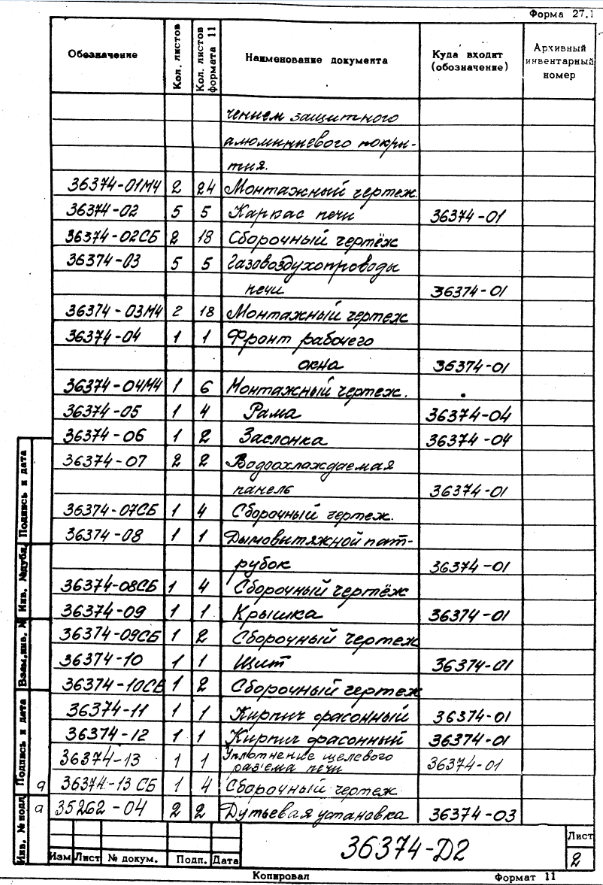 Форма 27.1
Обозначение | Кол. листов | Кол. листов формата 11 | Наименование документа | Куда входит (обозначение) | Архивный инвентарный номер
чением защитного
алюминиевого покры-
тия.
36374-01МЧ 2 24 Монтажный чертеж.
36374-02 5 5 Каркас печи 36374-01
36374-02СБ 2 18 Сборочный чертёж
36374-03 5 5 Газовоздухопроводы
печи 36374-01
36374-03МЧ 2 18 Монтажный чертеж
36374-04 1 1 Фронт рабочего
окна 36374-01
36374-04МЧ 1 6 Монтажный чертеж.
36374-05 1 4 Рама 36374-04
36374-06 1 2 Заслонка 36374-04
36374-07 2 2 Водоохлаждаемая
панель 36374-01
36374-07СБ 1 4 Сборочный чертеж.
36374-08 1 1 Дымовытяжной пат-
рубок 36374-01
36374-08СБ 1 4 Сборочный чертёж
36374-09 1 1 Крышка 36374-01
36374-09СБ 1 2 Сборочный чертеж
36374-10 1 1 Щит 36374-01
36374-10СБ 1 2 Сборочный чертеж
36374-11 1 1 Кирпич фасонный 36374-01
36374-12 1 1 Кирпич фасонный 36374-01
36374-13 1 1 Уплотнение щелевого
разъема печи 36374-01
а 36374-13 СБ 1 4 Сборочный чертеж
а 35262-04 2 2 Дутьевая установка 36374-03
Подпись и дата
Инв. №дубл.
Взам.инв. №
Подпись и дата
Инв. № подл.
Изм Лист № докум. Подп. Дата
36374-Д2
Лист
2
Копировал Формат 11